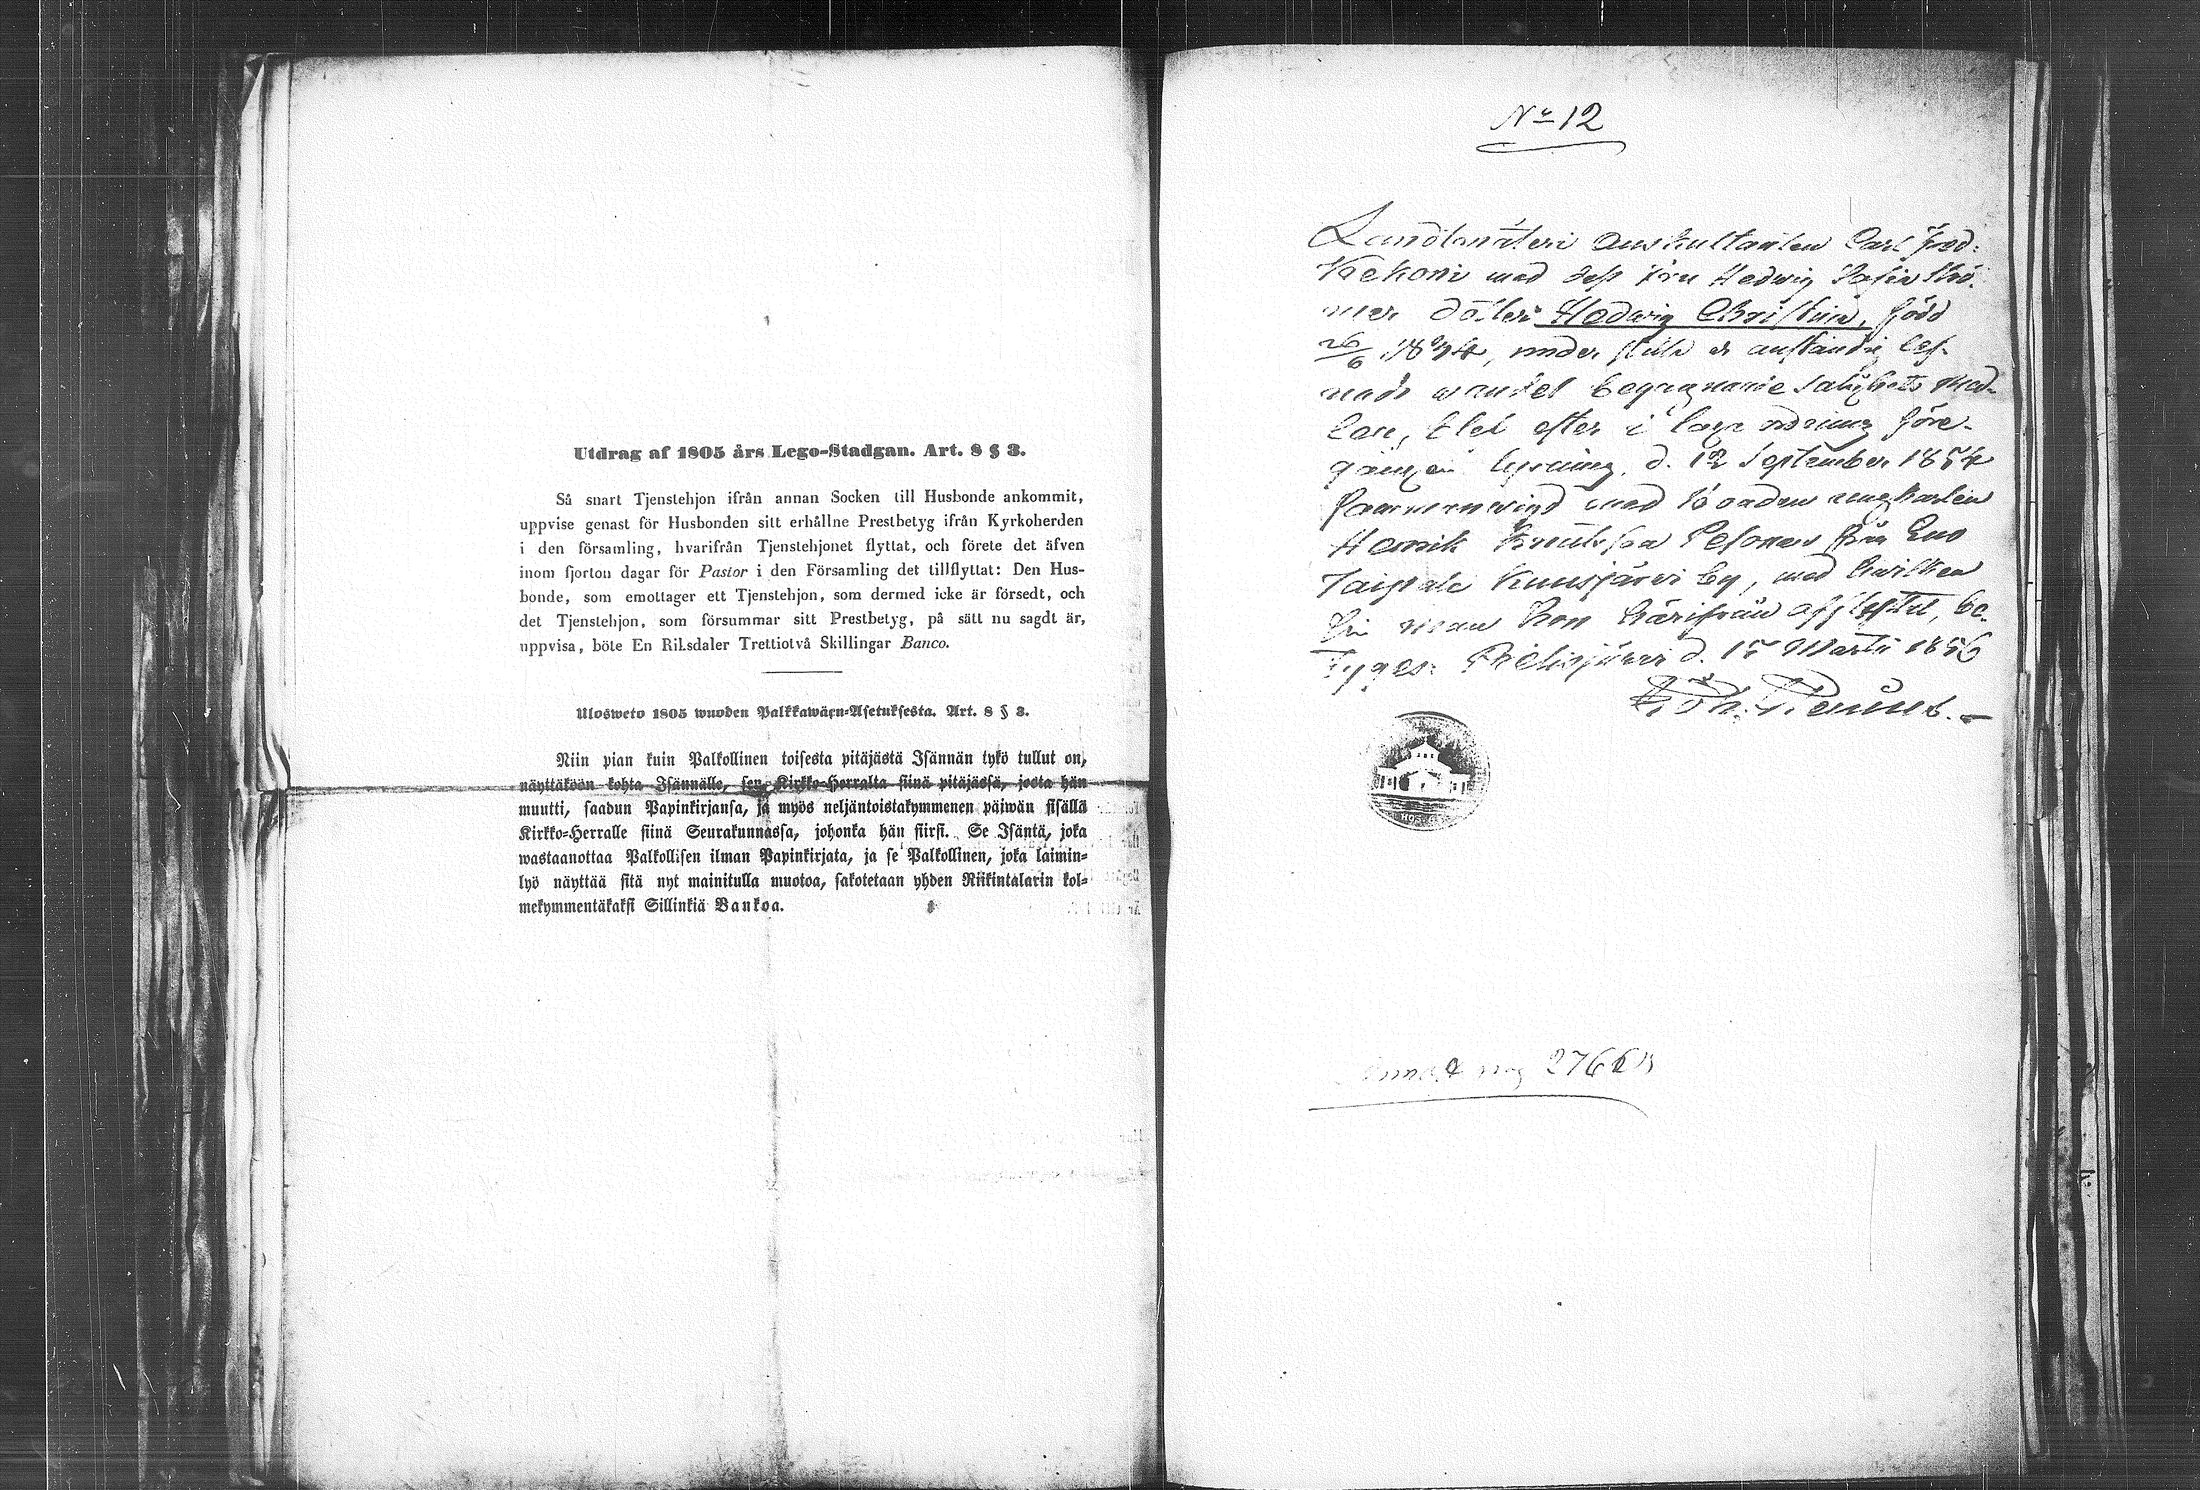 Utdrag af 1805 års Lego-Stadgan. Art. 8 § 3.
Så snart Tjenstehjon ifrån annan Socken till Husbonde ankommit,
uppvise genast för Husbonden sitt erhållne Prestbetyg ifrån Kyrkoherden
i den församling, hvarifrån Tjenstehjonet flyttat, och förete det äfven
inom fjorton dagar för Pastor i den Församling det tillflyttat: Den Hus-
bonde, som emottager ett Tjenstehjon, som dermed icke är försedt, och
det Tjenstehjon, som försummar sitt Prestbetyg, på sätt nu sagdt är,
uppvisa, böte En Riksdaler Trettiotvå Skillingar Banco.
Ulosweto 1805 wuoden Palkkawäen-Asetuksesta. Art. 8 § 3.
Niin pian kuin Palkollinen toisesta pitäjästä Isännän tykö tullut on,
näyttäköön kohta Isännälle, sen Kirkko-Herralta siinä pitäjässä, josta hän
muutti, saadun Papinkirjansa, ja myös neljäntoistakymmenen päiwän sisällä
Kirkko-Herralle siinä Seurakunnassa, johonka hän siirsi. Se Isäntä, joka
wastaanottaa Palkollisen ilman Papinkirjata, ja se Palkollinen, joka laimin-
lyö näyttää sitä nyt mainitulla muotoa, sakotetaan yhden Riikintalarin kol-
mekymmentäkaksi Sillinkiä Bankoa.
No 12
Landtmäteri Auskultanten Carl Fred:
med dess Fru Hedwig Sofia
dotter Hedwig Christina, född
26/6 1834, under stilla o anständig lef-
nads wandel begagnande salighets med-
len, blef efter i laga ordning före-
gången lysning, d. 12 September 1854
sammanwigd med Bonden ungkarlen
Henrik Pesonen från Eno
Taipale Kuusjärvi by, med hwilken
sin man hon härifrån afflyttat, be-
tyges. Pielisjärvi d. 15 Martii 1856
276